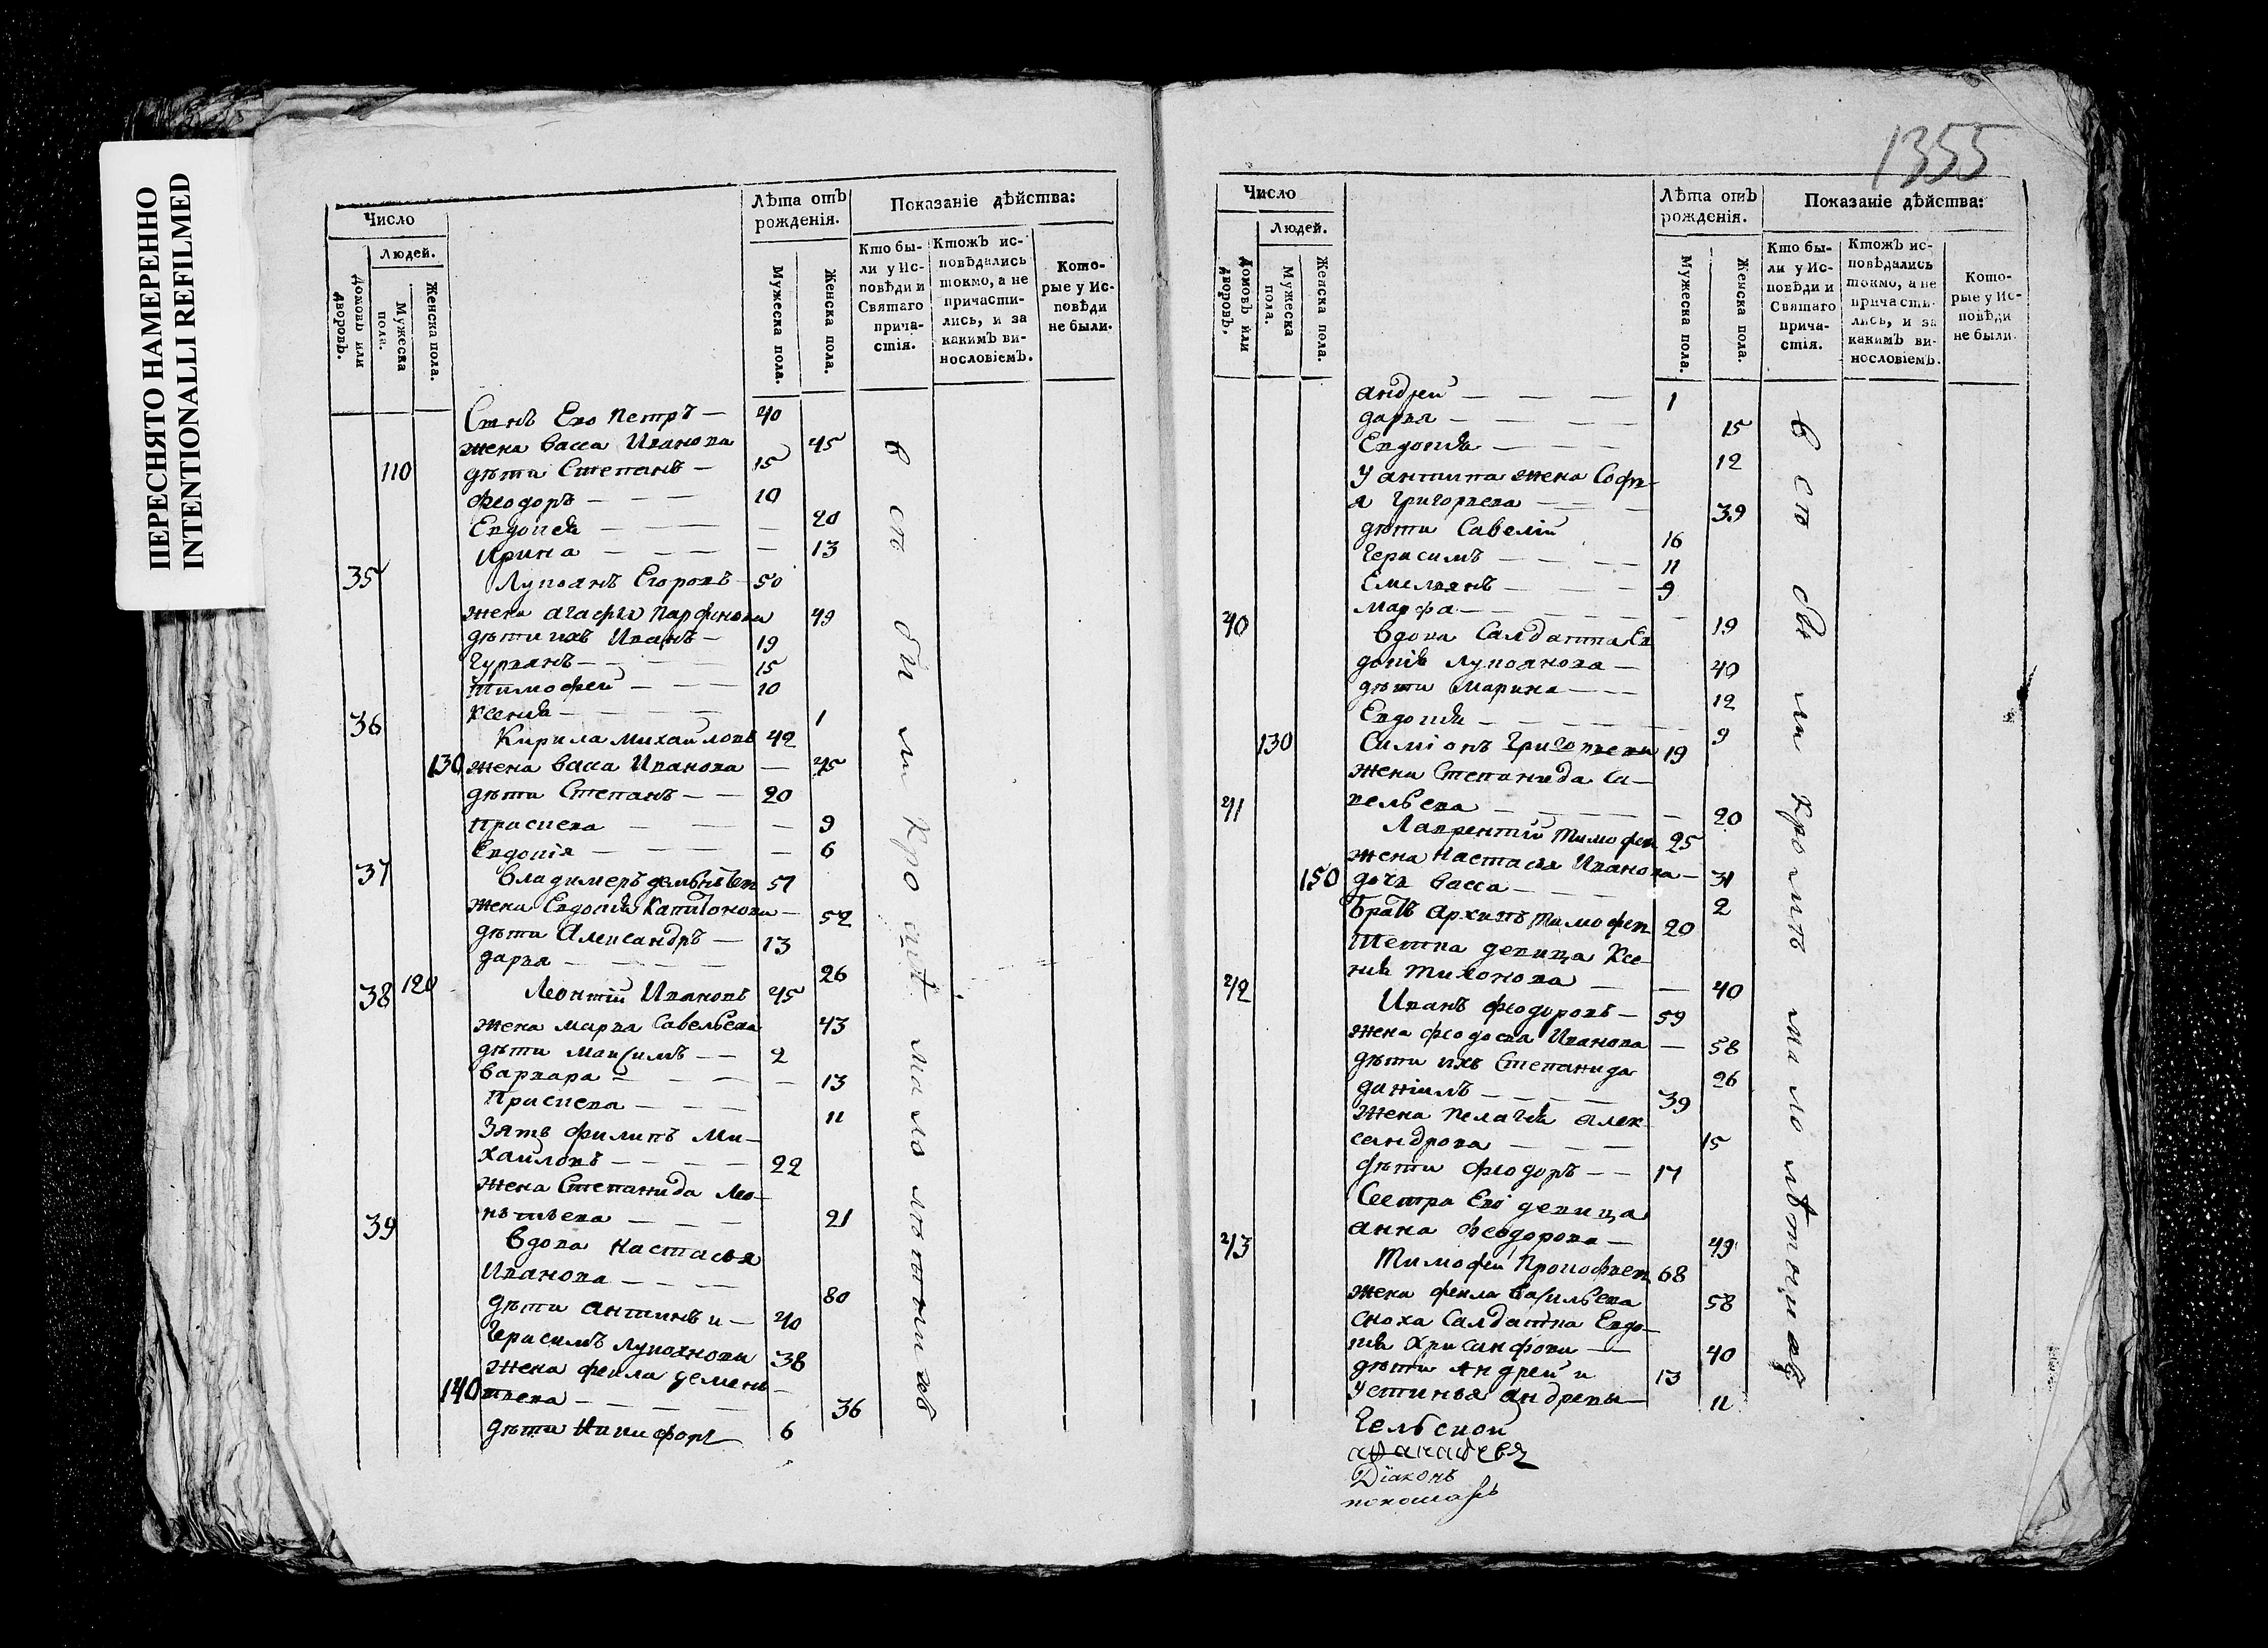 ПЕРЕСНЯТО НАМЕРЕННО
INTENTIONALLI REFILMED
Число
Людей.
Домовъ или дворовъ.
Мужеска пола.
Женска пола.
Лѣта отъ рожденія.
Мужеска пола.
Женска пола.
Показаніе дѣйства:
Кто были у Исповѣди и Святаго причастія.
Ктожъ исповѣдались токмо, а не причастились, и за какимъ винословіемъ.
Которые у Исповѣди не были.
Сынъ Его Петръ — 40
жена Васса Иванова 45
110 дѣти Степанъ — 15
Феодоръ — — — 10
Евдокія — — — — 20
Ирина — — — — 13
35 Лупоянъ Егоровъ 50
жена Агафія Парфинова 49
дѣти ихъ Иванъ — 19
Гурьянъ — — — 15
Тимофей — — — 10
Ксенія — — — — 1
36 Кирила Михаиловъ 42
130 жена Васса Иванова — 45
дѣти Степанъ — — 20
Праскева — — — 9
Евдокія — — — — 6
37 Владимеръ 57
жена Евдокія Капитонова — 52
дѣти Александръ — 13
Дарья — — — — 26
38 120 Леонтій Ивановъ 45
жена Марья Савельева 43
дѣти Максимъ — — 2
Варвара — — — — 13
Праскева — — — 11
Зять Филипъ Ми-
хаиловъ — — — — 22
жена Степанида Лео-
нтьева — — — 21
39 Вдова Настасья
Иванова — — — 80
дѣти Антипъ и — 40
Герасимъ Лупоянови 38
жена Фекла Демень-
140 тьева — — — — 36
дѣти Никифоръ 6
всѣ были кромѣ малолѣтнихъ
1355
Число
Людей.
Домовъ или дворовъ.
Мужеска пола.
Женска пола.
Лѣта отъ рожденія.
Мужеска пола.
Женска пола.
Показаніе дѣйства:
Кто были у Исповѣди и Святаго причастія.
Ктожъ исповѣдались токмо, а не причастились, и за какимъ винословіемъ.
Которые у Исповѣди не были.
Андрей — — — 1
Дарья — — — — 15
Евдокія — — — 12
У Антипа жена Софь-
я Григорьева — — — 39
дѣти Савелій 16
Герасимъ — — — 11
Емельянъ — — — 9
Марфа — — — — — 19
40 Вдова Салдатка Ев
докія Лупоянова — 40
дѣти Марина — — — 12
Евдокія — — — — — 9
130 Симіонъ Григорьевъ 19
жена Степанида Са-
41 вельева — — — — — 20
Лаврентій Тимофеи 25
жена Настасья Иванова — 31
150 дочь Васса — — — 2
Братъ Архипъ Тимофеи 20
Тетка девица Ксе-
нія Тихонова — — 40
42 Иванъ Феодоровъ — 59
жена Феодосья Иванова — 58
дѣти ихъ Степанида 26
Даніилъ — — — — 39
жена Пелагія Алек-
сандрова — — — 15
дѣти Феодоръ — — 17
Сестра Его девица
Анна Феодорова — 49
43 Тимофей Прокофьевъ 68
жена Фекла Васильева 58
сноха Салдатка Евдо-
кія Хрисанфова — — 40
дѣти Андрей и 13
Устинья Андревы — 11
всѣ были кромѣ малолѣтнихъ
Діаконъ
пономарь